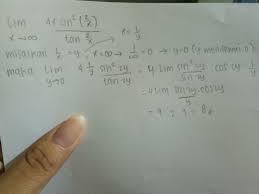 lim 4x sin² (2/x)
x→∞ tan 2/x
misalkan 1/x = y x→∞ = 1/∞ = 0 → y=0 (y mendekati 0) x = 1/y
maka lim 4 1/y sin² 2y / tan 2y = 4 lim sin² 2y / sin 2y . cos 2y 1/y
y→0
= 4 lim sin 2y . cos 2y
y